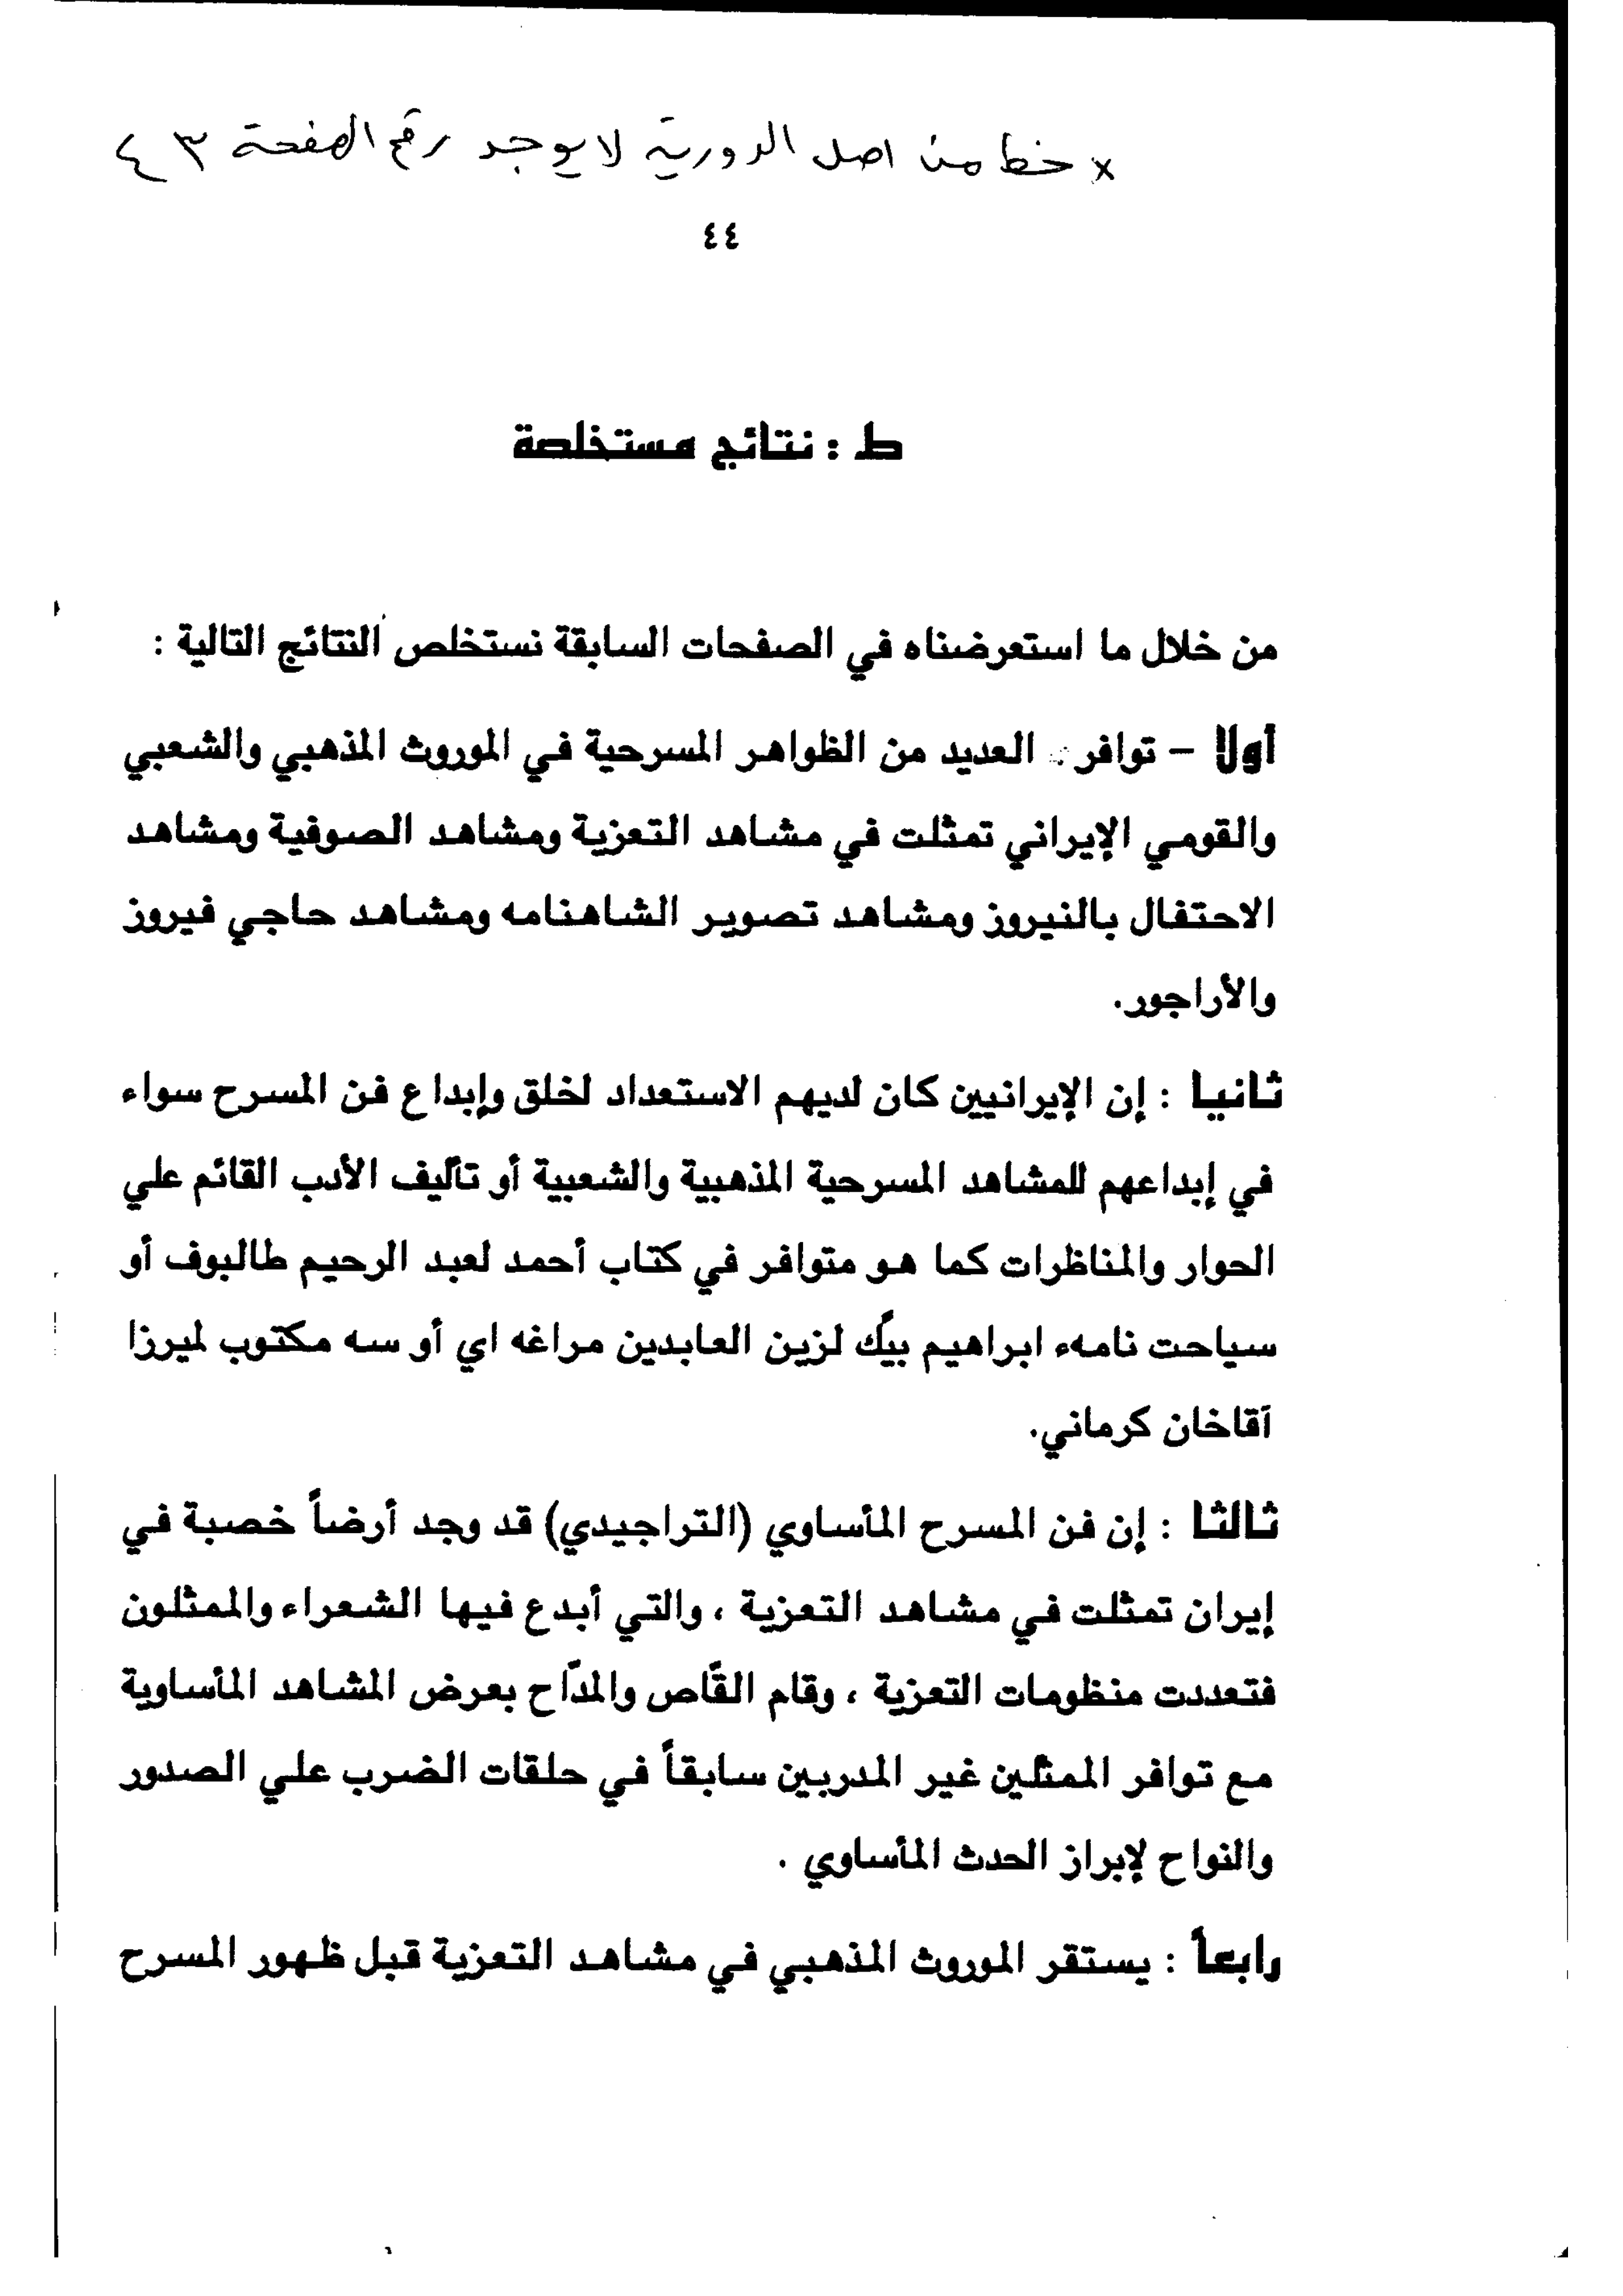 x خطا من اصل الدورية لا يوجد رقم الصفحة ٤٣
٤٤
ط : نتائج مستخلصة
من خلال ما استعرضناه في الصفحات السابقة نستخلص النتائج التالية :
أولا – توافر العديد من الظواهر المسرحية في الموروث المذهبي والشعبي
والقومي الإيراني تمثلت في مشاهد التعزية ومشاهد الصوفية ومشاهد
الاحتفال بالنيروز ومشاهد تصوير الشاهنامه ومشاهد حاجي فيروز
والأراجور.
ثانيا : إن الإيرانيين كان لديهم الاستعداد لخلق وإبداع فن المسرح سواء
في إبداعهم للمشاهد المسرحية المذهبية والشعبية أو تأليف الأدب القائم علي
الحوار والمناظرات كما هو متوافر في كتاب أحمد لعبد الرحيم طالبوف أو
سياحت نامهء ابراهيم بيگ لزين العابدين مراغه اي أو سه مكتوب لميرزا
آقاخان كرماني.
ثالثا : إن فن المسرح المأساوي (التراجيدي) قد وجد أرضاً خصبة في
إيران تمثلت في مشاهد التعزية ، والتي أبدع فيها الشعراء والممثلون
فتعددت منظومات التعزية ، وقام القّاص والمدّاح بعرض المشاهد المأساوية
مع توافر الممثلين غير المدربين سابقاً في حلقات الضرب علي الصدور
والنواح لإبراز الحدث المأساوي .
رابعاً : يستقر الموروث المذهبي في مشاهد التعزية قبل ظهور المسرح